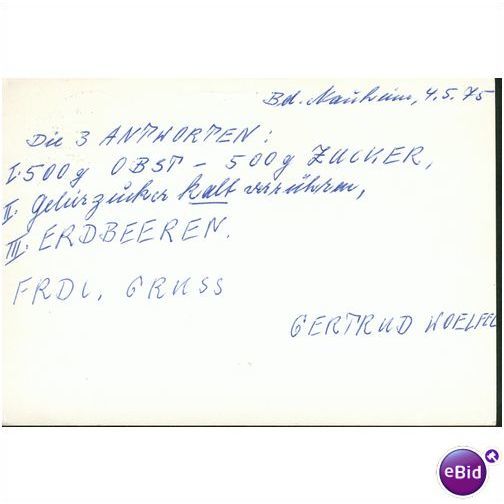 Bd. Nauheim, 4.5.75
Die 3 ANTWORTEN:
I. 500g OBST - 500g ZUCKER,
II. Gelierzucker kalt verrühren,
III. ERDBEEREN.
FRDL. GRUSS
GERTRUD WOELFEL
eBid